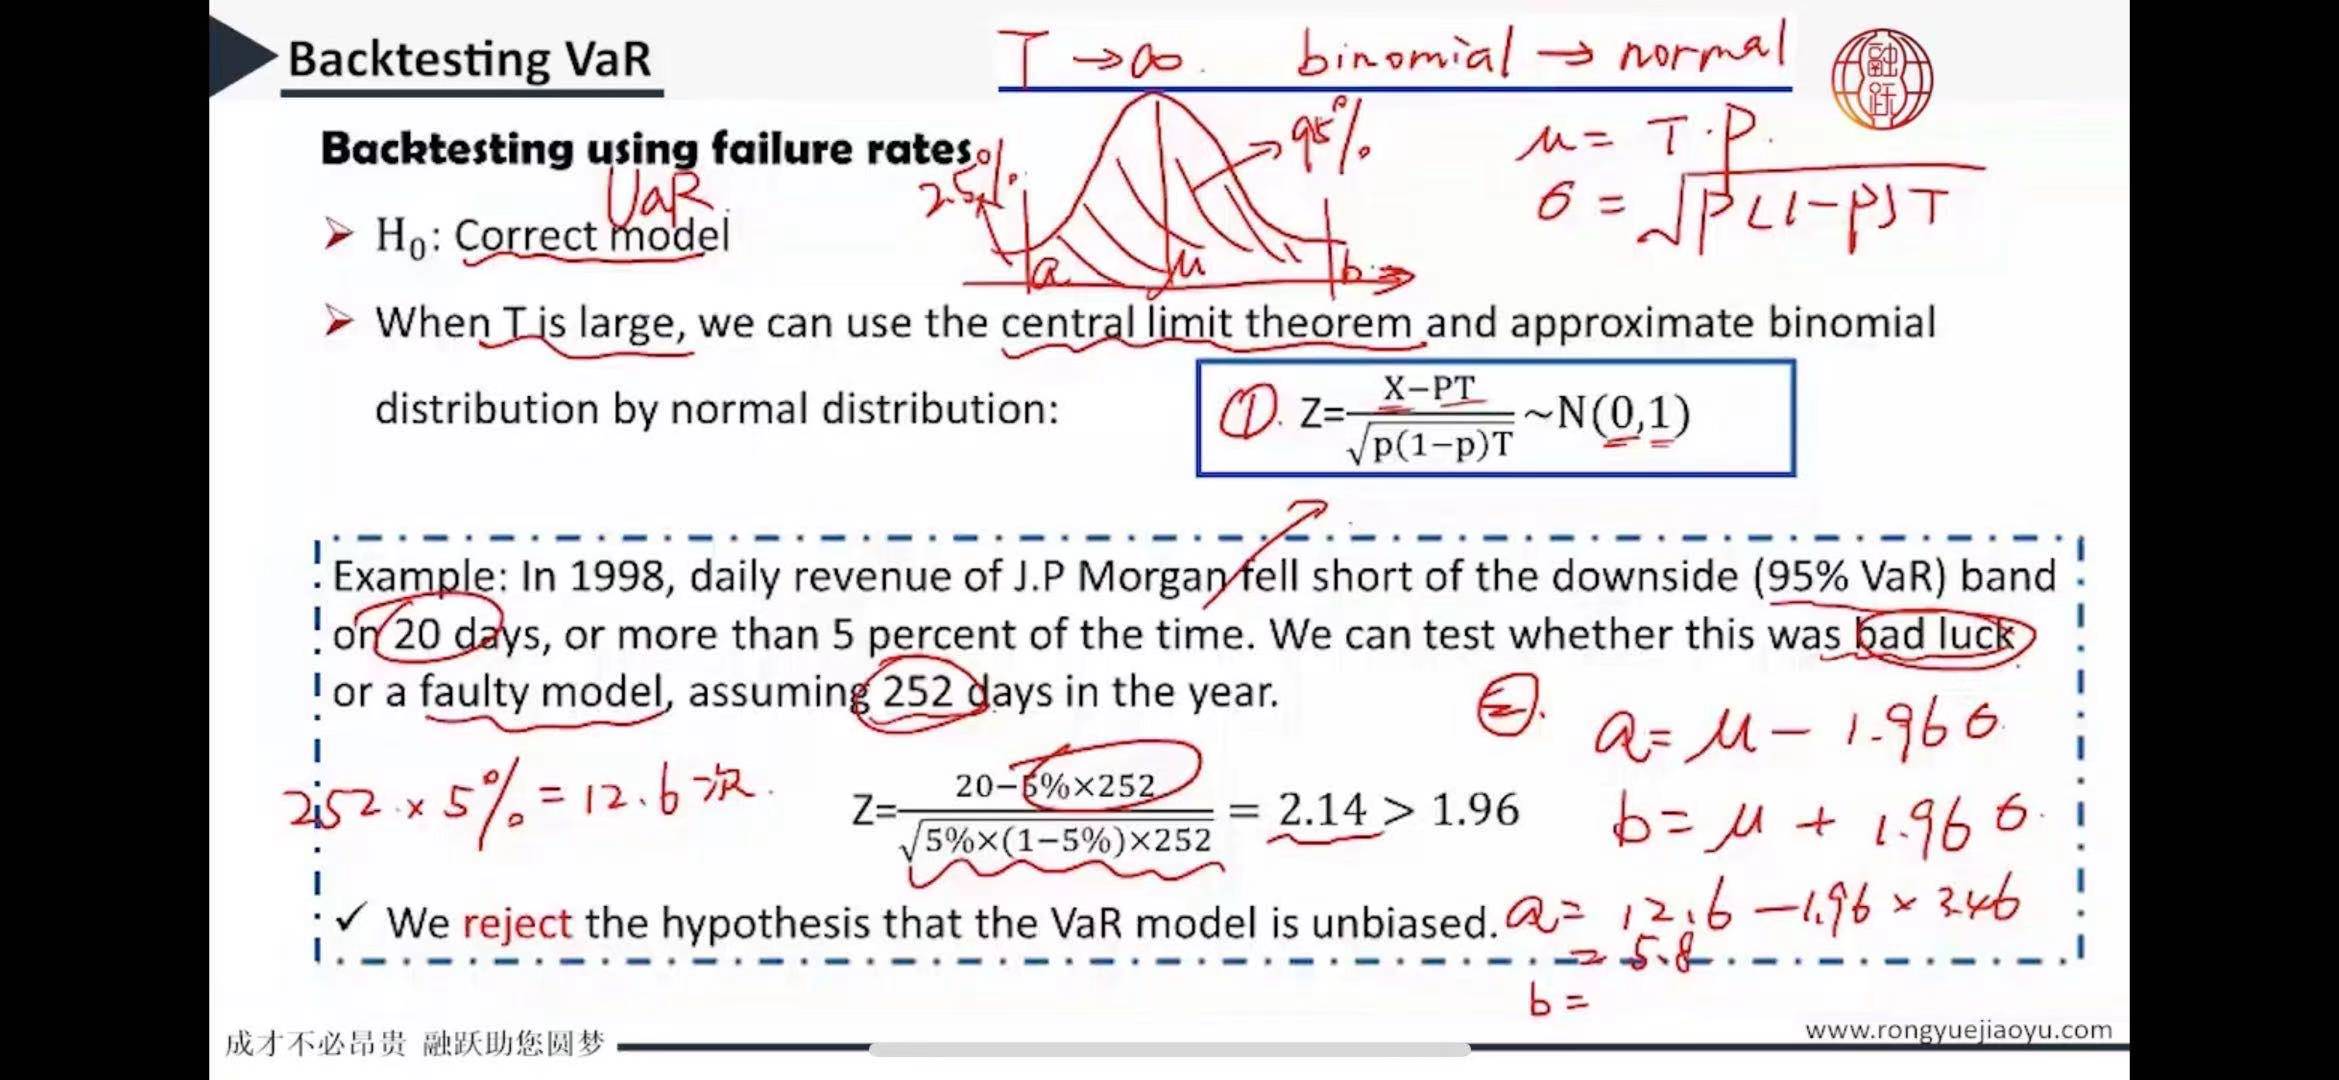 Backtesting VaR
T → ∞. binomial → normal
融跃
Backtesting using failure rates
VaR
2.5%
95%
a μ b
μ = T·P.
σ = √p(1-p)T
➤ H₀: Correct model
➤ When T is large, we can use the central limit theorem and approximate binomial
distribution by normal distribution:
①. Z=(X−PT)/√p(1−p)T ~N(0,1)
Example: In 1998, daily revenue of J.P Morgan fell short of the downside (95% VaR) band
on 20 days, or more than 5 percent of the time. We can test whether this was bad luck
or a faulty model, assuming 252 days in the year.
②. a= μ - 1.96σ.
b= μ + 1.96σ.
252 × 5% = 12.6次.
Z=(20−5%×252)/√5%×(1−5%)×252 = 2.14 > 1.96
✓ We reject the hypothesis that the VaR model is unbiased.
a= 12.6 - 1.96 × 3.46
= 5.8
b =
成才不必昂贵 融跃助您圆梦
www.rongyuejiaoyu.com